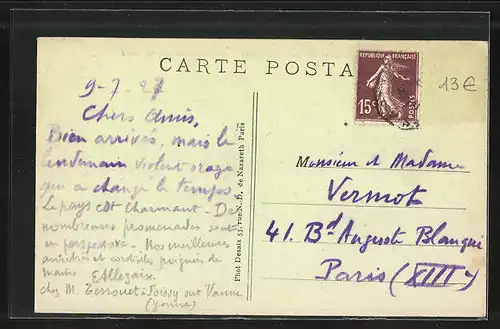 CARTE POSTA
REPUBLIQUE FRANÇAISE
15c
POSTES
13€
9-7.27
Chers Amis,
Bien arrivés, mais le
lendemain violent orage
qui a changé le temps
Le pays est charmant - De
nombreuses promenades sont
en perspective. Nos meilleures
amitiés et cordiales poignées de
mains.
chez M. à Foissy sur Vanne
(Yonne)
Phot Desaix 53, rue N. D. de Nazareth Paris
Monsieur et Madame
Vermot
41. Bd Auguste Blanqui
Paris (XIIIe)